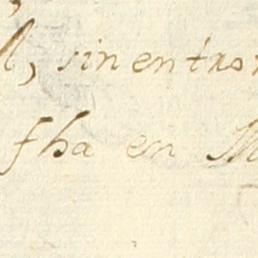 l, sin entro
fha en M